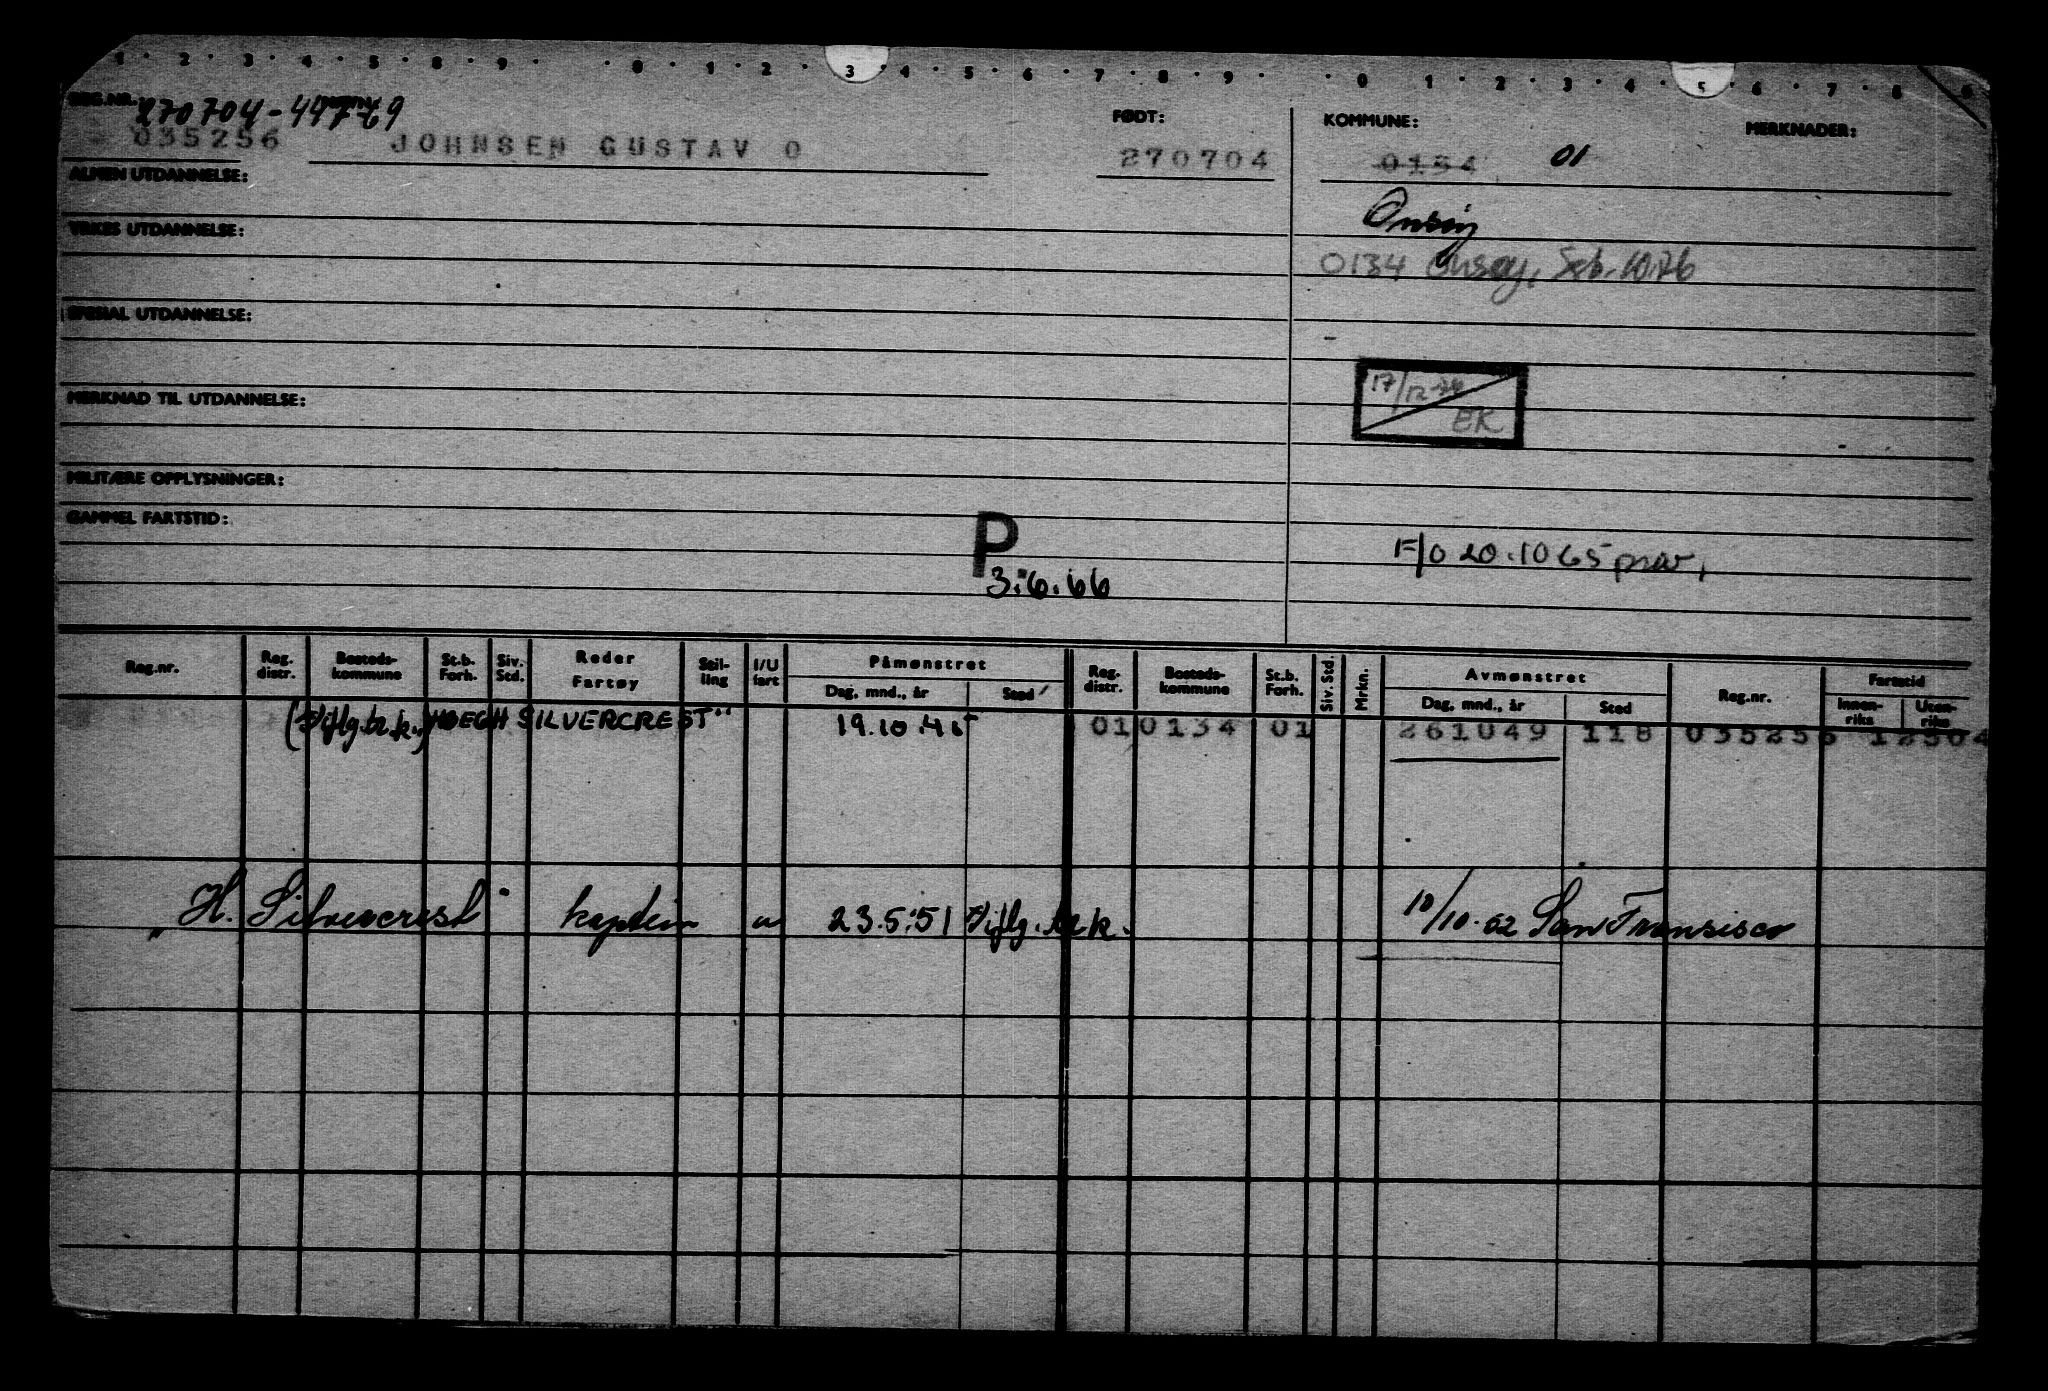 1 · 2 · 3 · 4 · 5 · 8 · 9 · 0 · 1 · 2 · 3 · 4 · 5 · 6 · 7 · 8 · 9 · 0 · 1 · 2 · 3 · 4 · 5 · 6 · 7 · 8 · 9
REG.NR.: 270704-44769 NAVN: FØDT: KOMMUNE: MERKNADER:
035256 JOHNSEN GUSTAV O 270704 0134 01
ALMEN UTDANNELSE:
Onsøy
YRKES UTDANNELSE:
0134 Onsøy, Feb. 1076
SPESIAL UTDANNELSE:
17/12-74
MERKNAD TIL UTDANNELSE:
EK
MILITÆRE OPPLYSNINGER:
GAMMEL FARTSTID:
P
F/O 20.10 65 prov,
3.6.66
Reg.nr. Reg. distr. Bosteds-kommune St.b. Forh. Siv. Std. Reder Fartøy Stil-ling I/U fart Påmønstret Dag, mnd., år Sted Reg. distr. Bosteds-kommune St.b. Forh. Siv. Std. Mrkn. Avmønstret Dag, mnd., år Sted Reg.nr. Fartstid Innen-riks Uten-riks
HOEGH SILVERCREST" 19.10.46 01 0134 01 261049 118 035256 12504
"H. Silvercrest" kaptein u 23.5.51 10/10.62 San Fransisco